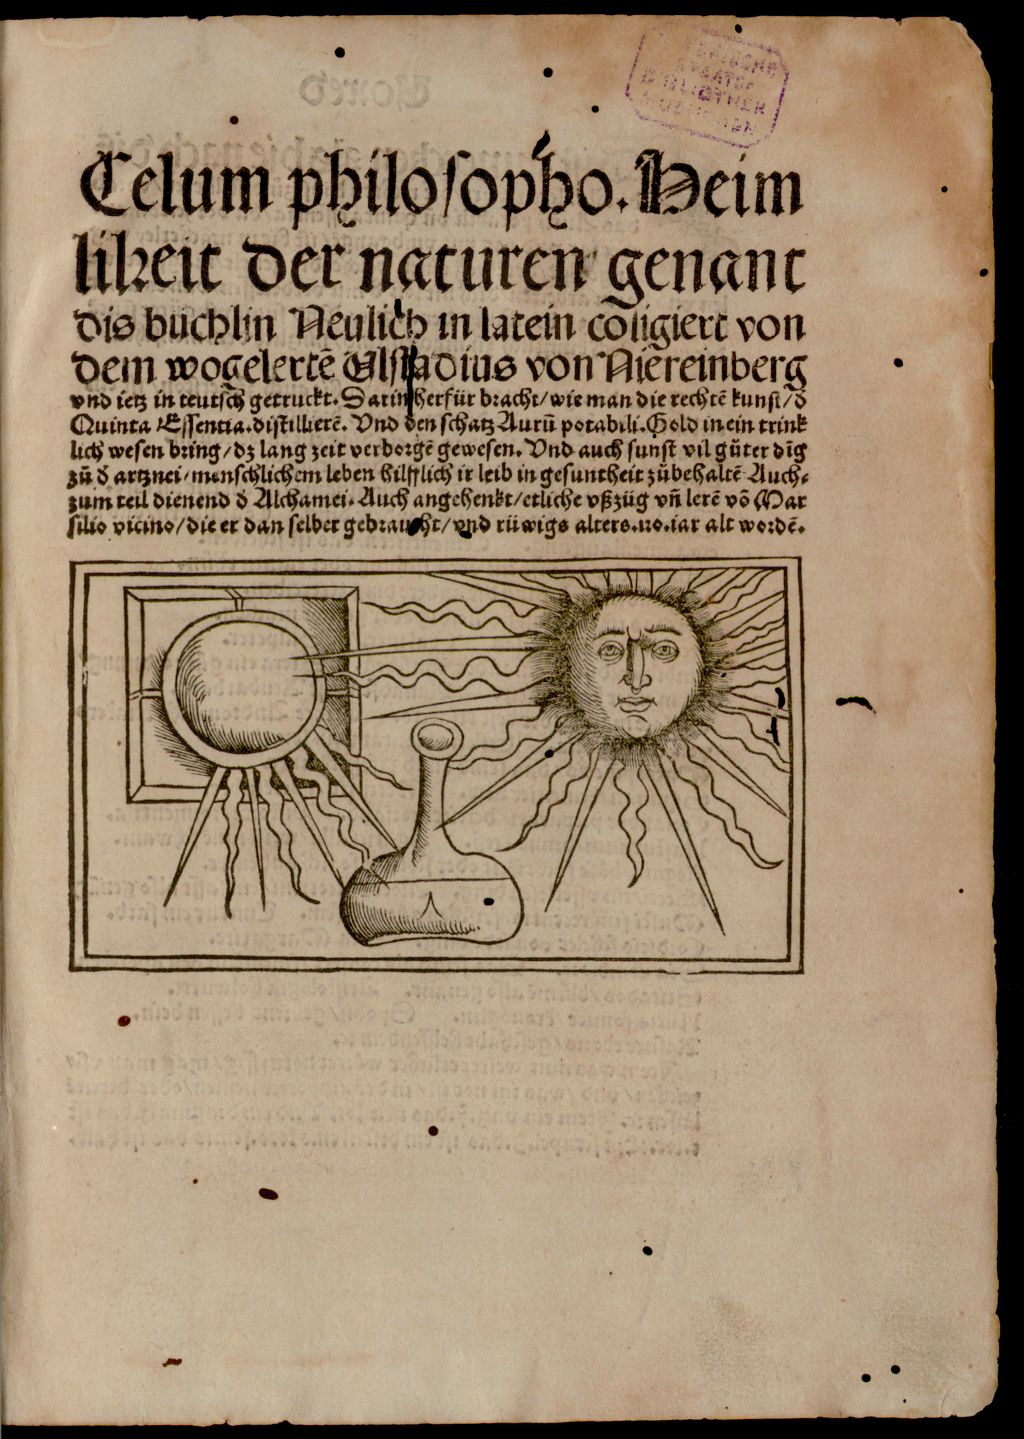 Celum philosopho. Heim
likeit der naturen genant
dis buchlin Neulich in latein coligiert von
dem wogelertē Ulstadius von Niereinberg
vnd ietz in teutsch getruckt. Darin herfür bracht/wie man die rechtē kunst/d
Quinta Essentia.distillierē. Vnd den schatz Aurū potabili.Gold in ein trink
lich wesen bring/dz lang zeit verborgē gewesen. Vnd auch sunst vil gůter dīg
zů d artznei/menschlichem leben hilfflich ir leib in gesuntheit zůbehaltē Auch
zum teil dienend d Alchamei. Auch angehenkt/etliche vßzüg vñ lerē vō Mar
silio vicino/die er dan selber gebraucht/vnd rüwigs alters.110.iar alt wordē.